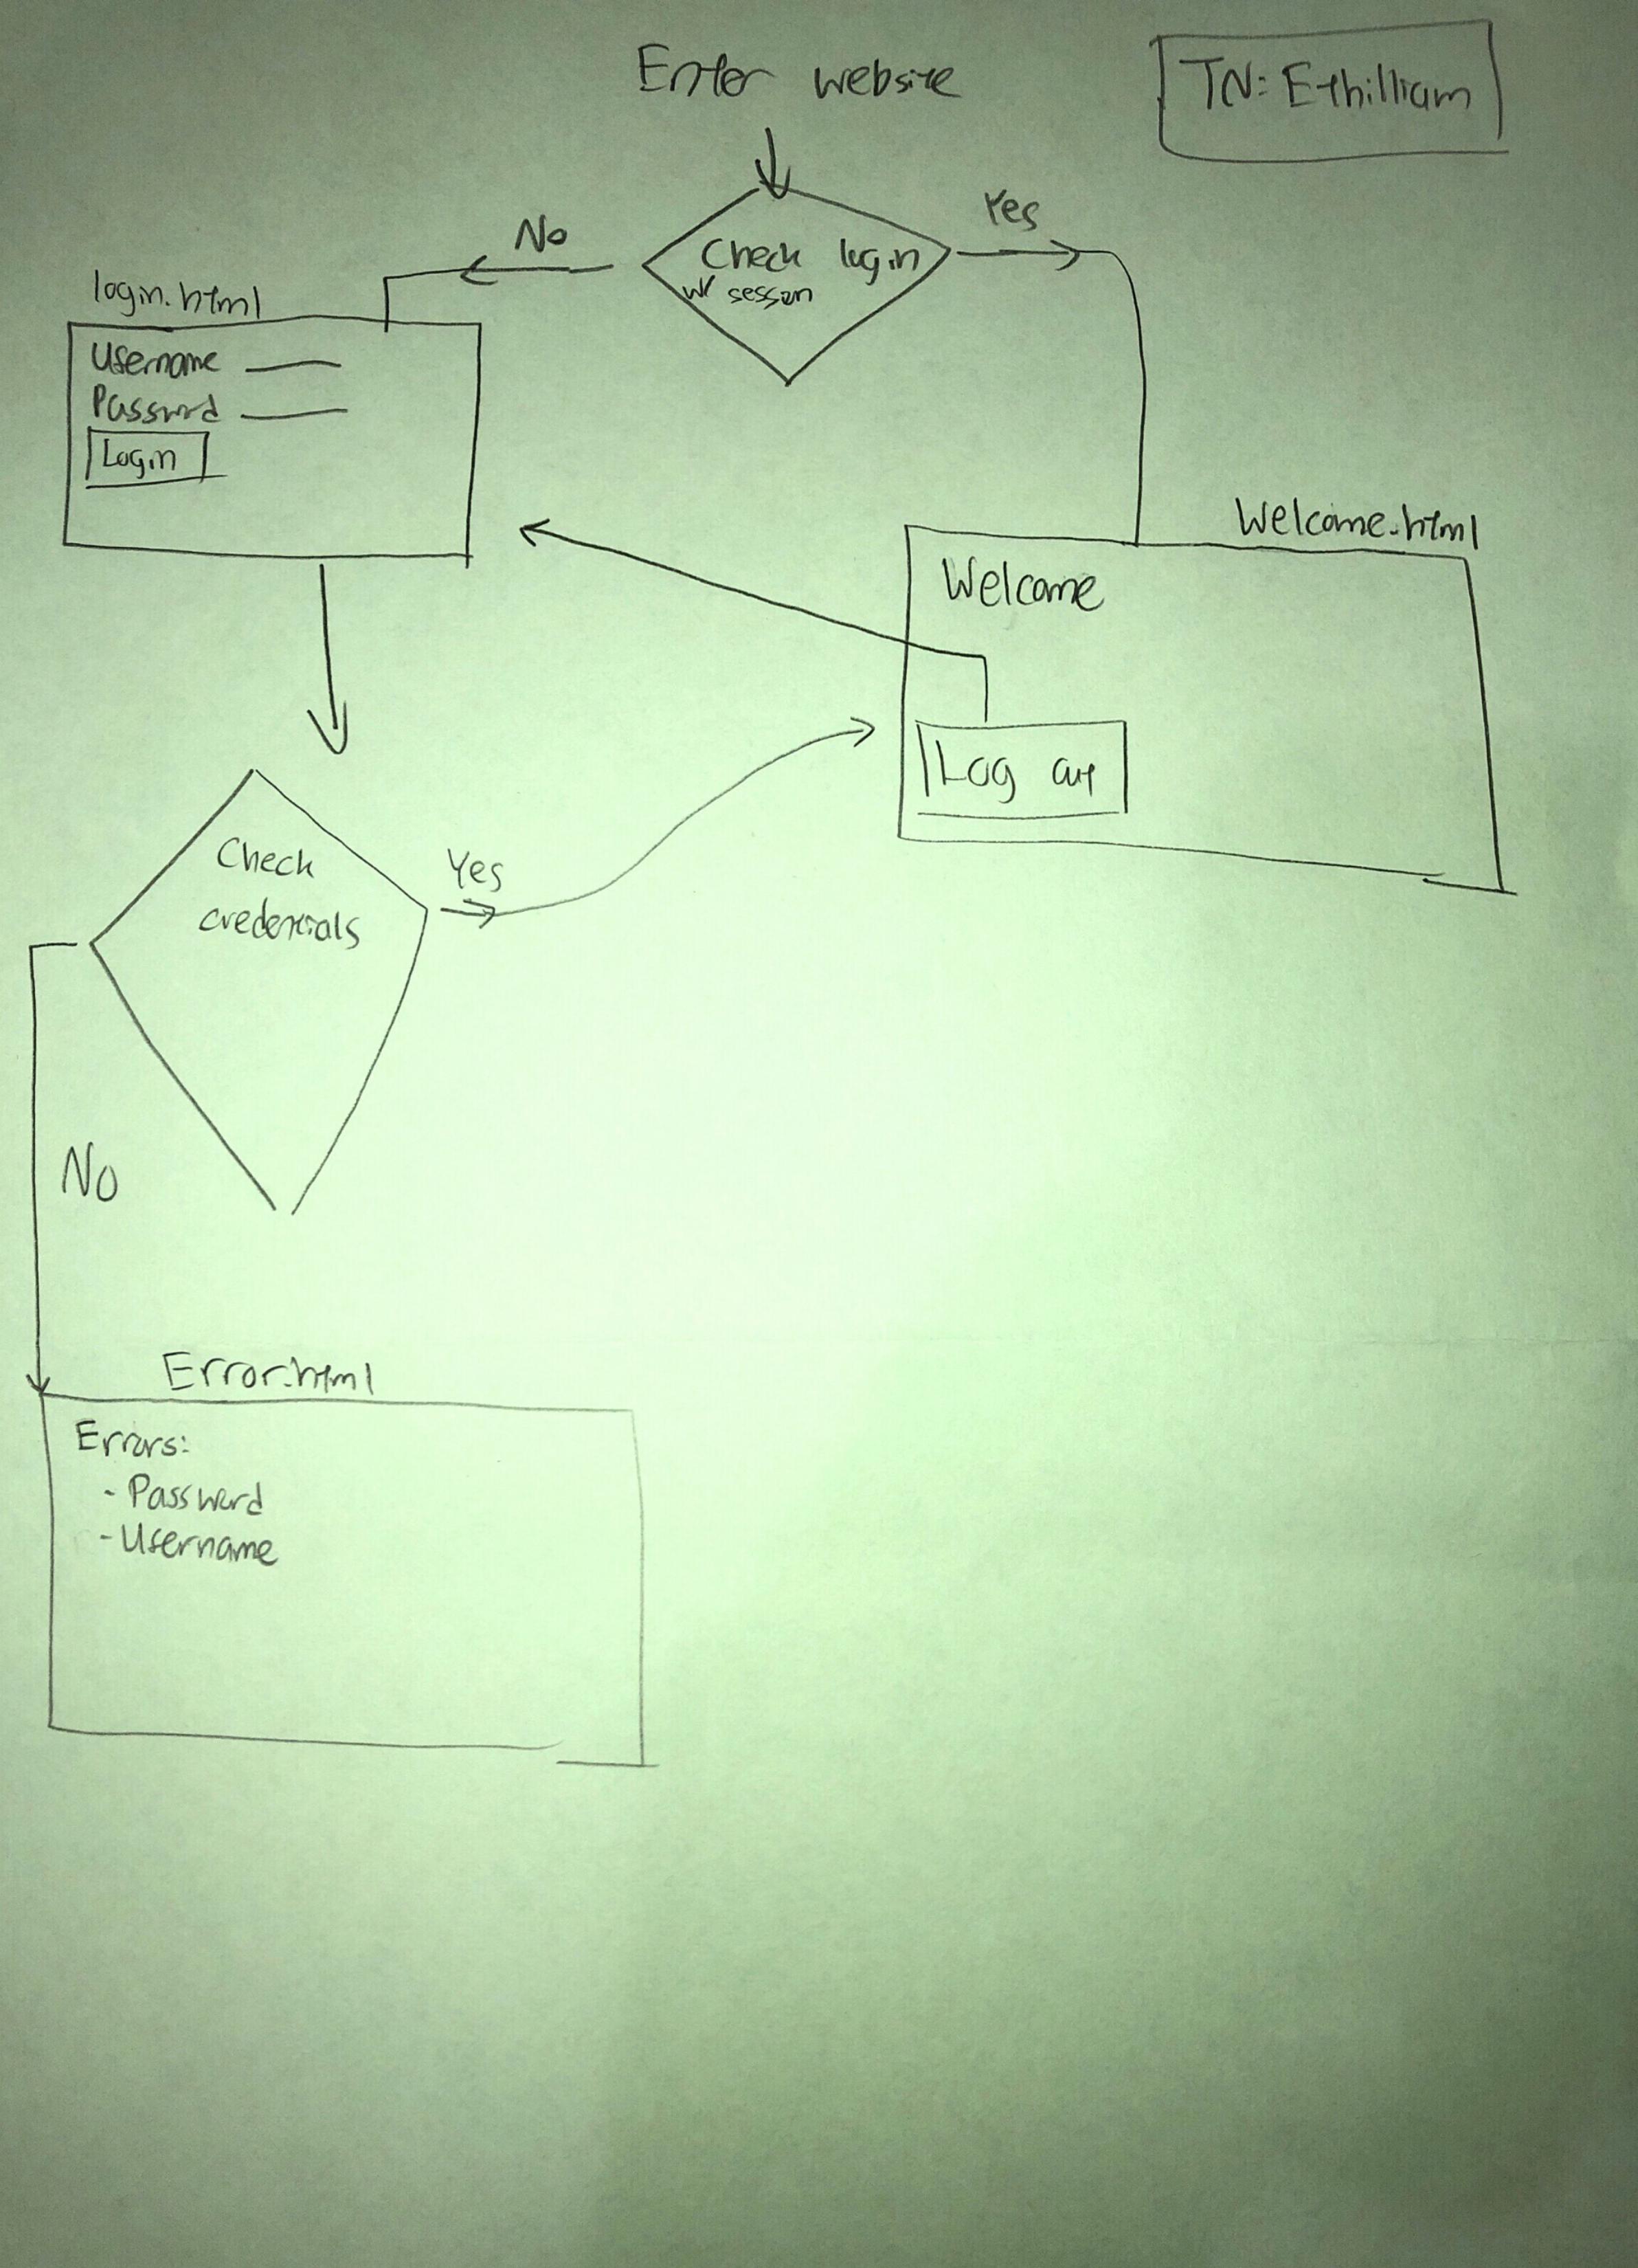 Enter website
TN: Ethilliam
No
Yes
Check login
w/ session
login.html
Username
Password
Login
Welcome.html
Welcome
Log out
Check
credentials
Yes
No
Error.html
Errors:
- Password
- Username